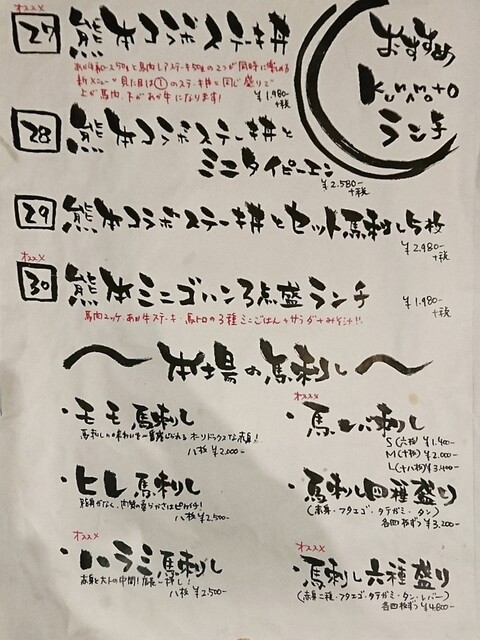 おすすめ
Kumamoto
ランチ
オススメ
27 熊本コラボステーキ丼
あか牛ロース50gと馬肉レアステーキ50gの2つが同時に楽しめる
新メニュー!! 見た目は①のステーキ丼と同じ盛りで
上が馬肉、下があか牛になります!
¥1,980-
+税
28 熊本コラボステーキ丼と
ミニタイピーエン
¥2,580-
+税
29 熊本コラボステーキ丼とセット馬刺し5枚
¥2,980-
+税
オススメ
30 熊本ミニごはん3点盛ランチ
¥1,980-
+税
馬肉ユッケ・あか牛ステーキ・馬トロの3種ミニごはん+サラダ+みそ汁!!
〜本場の馬刺し〜
・モモ馬刺し
馬刺しの味わいを一番感じられるオーソドックスな赤身!
八枚 ¥2,000-
・ヒレ馬刺し
脂身がなく、肉質の柔らかさはピカイチ!
八枚 ¥2,500-
オススメ
・ハラミ馬刺し
赤身と大トロの中間!店長一押し!
八枚 ¥2,500-
オススメ
・馬レバ刺し
S(六枚) ¥1,400-
M(十枚) ¥2,000-
L(十八枚) ¥3,400-
・馬刺し四種盛り
(赤身・フタエゴ・タテガミ・タン)
各四枚ずつ ¥3,200-
オススメ
・馬刺し六種盛り
(赤身二種・フタエゴ・タテガミ・タン・レバー)
各四枚ずつ ¥4,800-